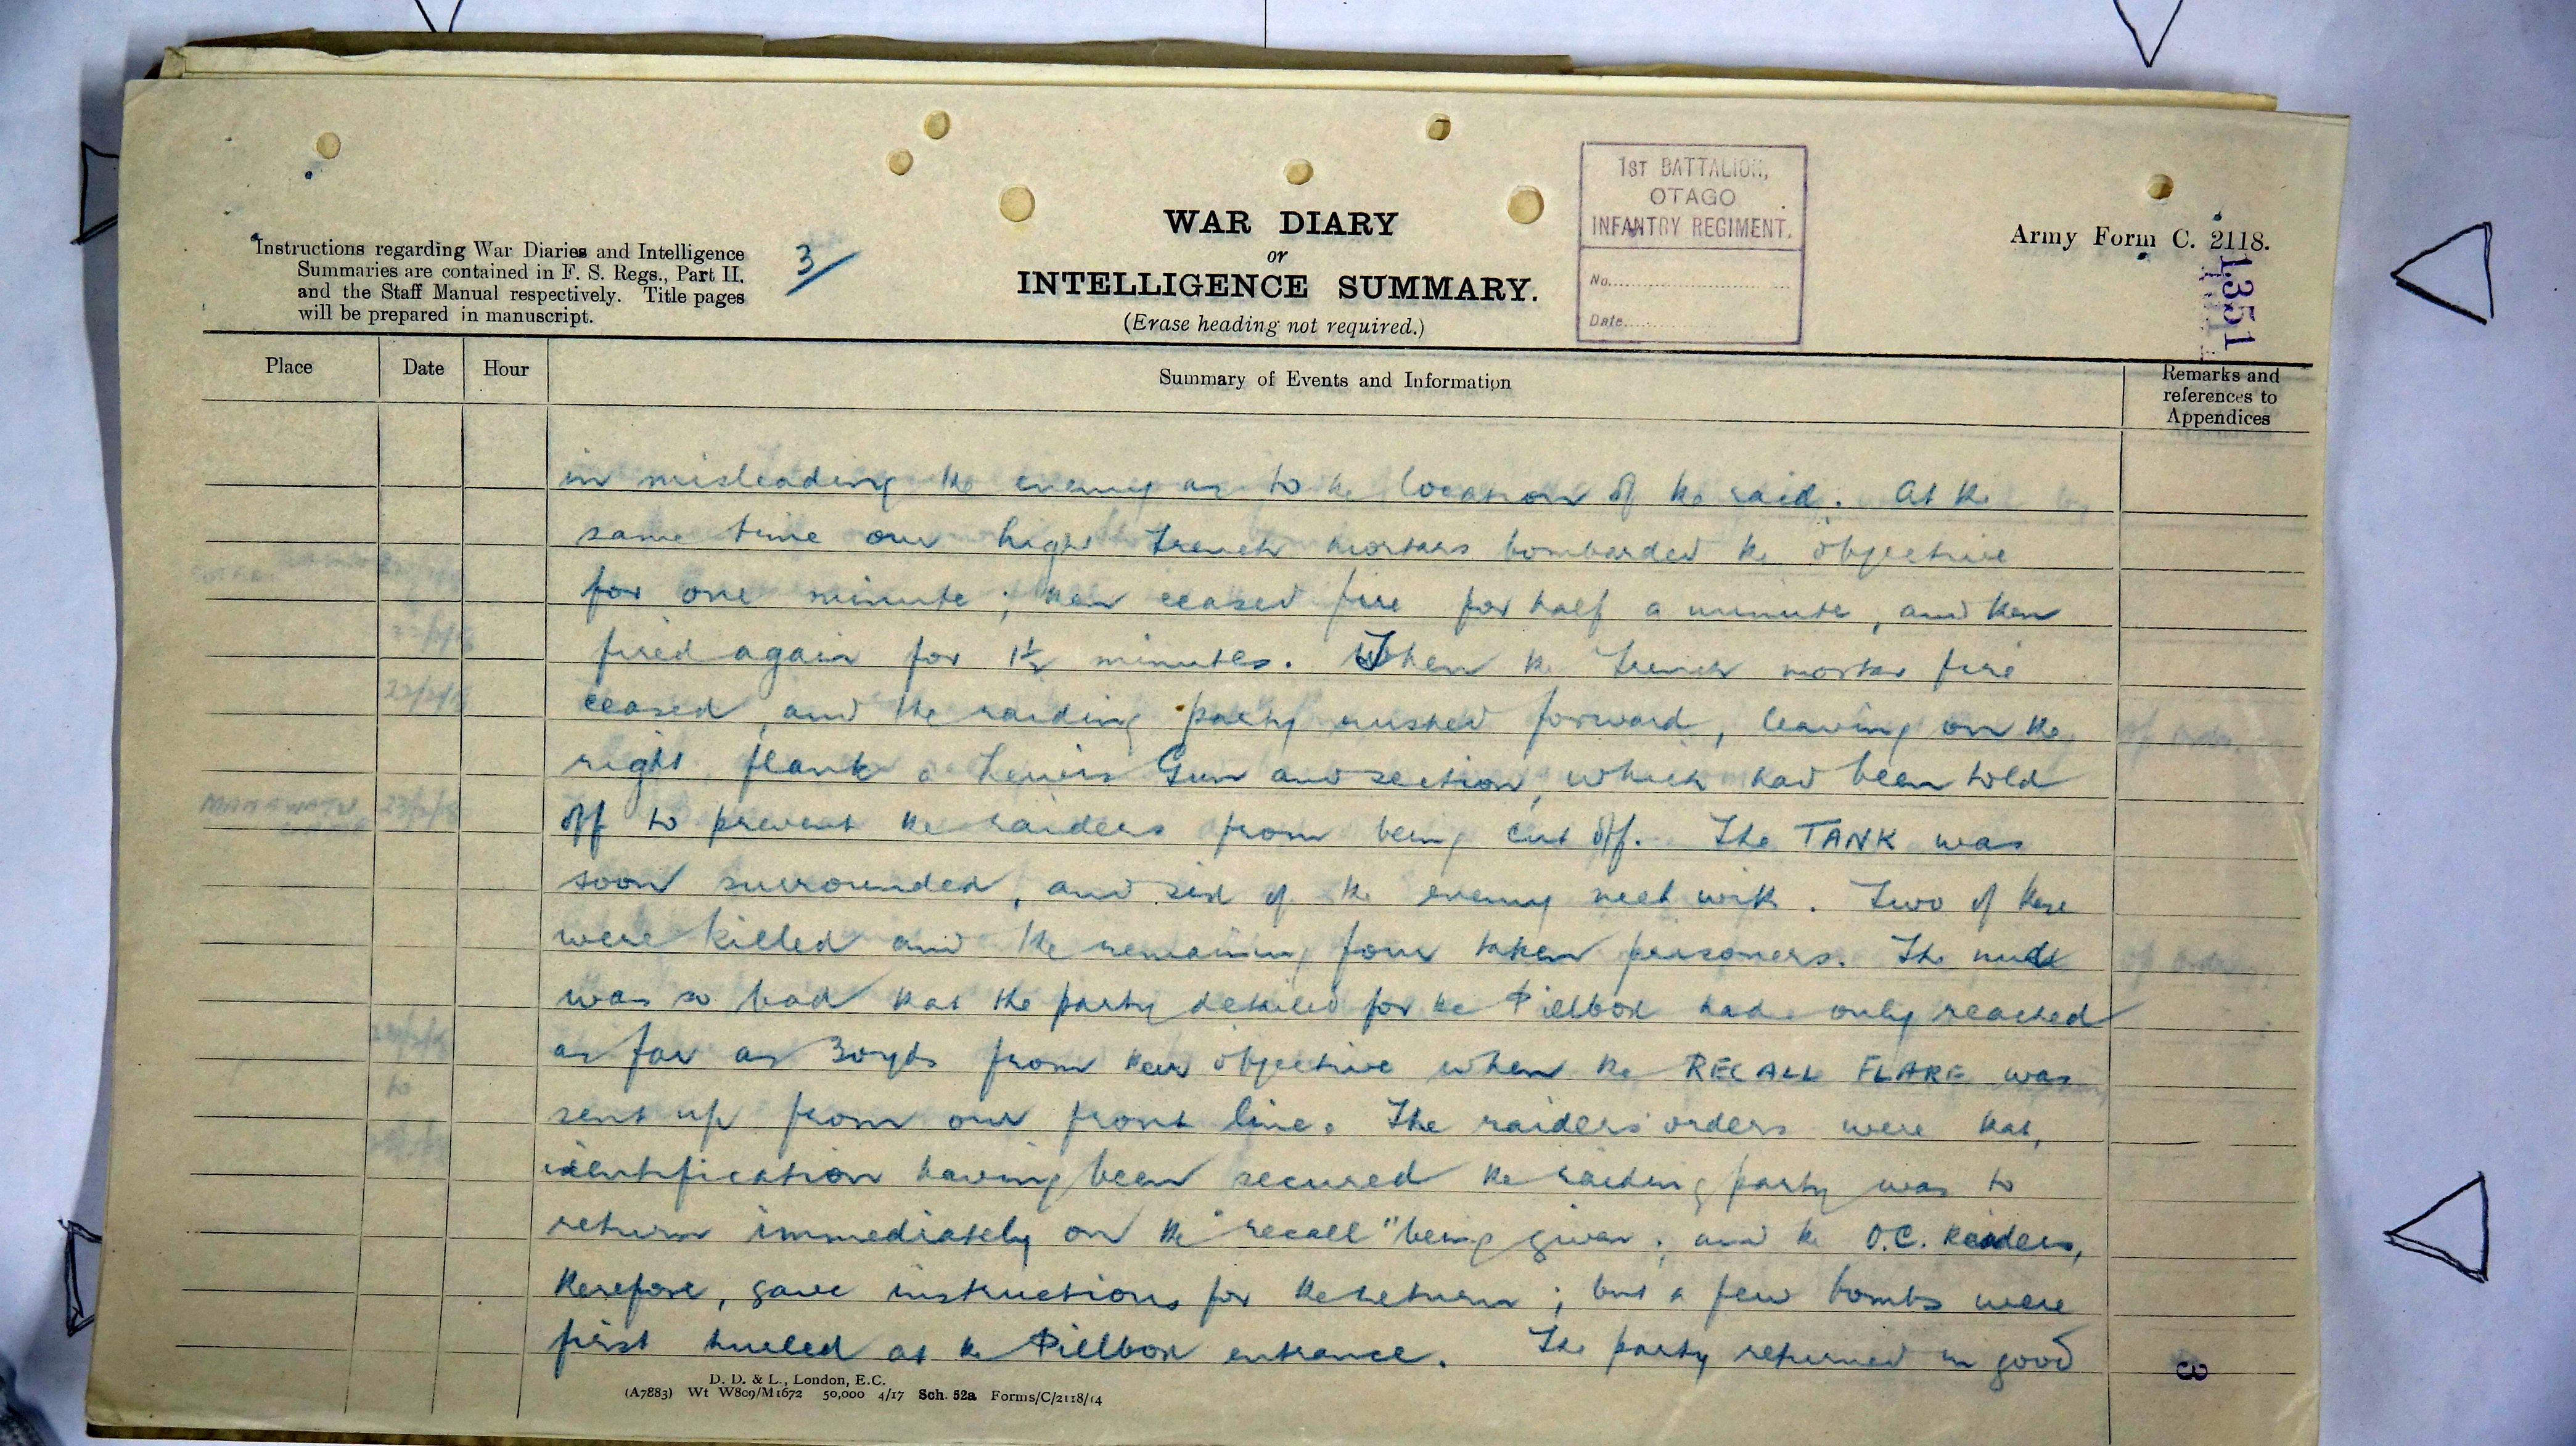 1ST BATTALION,
OTAGO
INFANTRY REGIMENT.
No.
Date.
WAR DIARY
or
INTELLIGENCE SUMMARY.
(Erase heading not required.)
Army Form C. 2118.
1351
Instructions regarding War Diaries and Intelligence
Summaries are contained in F. S. Regs., Part II.
and the Staff Manual respectively. Title pages
will be prepared in manuscript.
3/
Place Date Hour Summary of Events and Information Remarks and
references to
Appendices
in misleading the enemy as to the location of the raid. At the
same time our light trench mortars bombarded the objective
for one minute; then ceased fire for half a minute, and then
fired again for 1½ minutes. When the trench mortar fire
ceased, and the raiding party rushed forward, leaving on the
right flank a Lewis Gun and section, which had been told
off to prevent the raiders from being cut off. The TANK was
soon surrounded, and six of the enemy met with. Two of these
were killed and the remaining four taken prisoners. The mud
was so bad that the party detailed for the Pillbox had only reached
as far as 30yds from their objective when the RECALL FLARE was
sent up from our front line. The raiders' orders were that,
identification having been secured the raiding party was to
return immediately on the "recall" being given; and the O.C. Raiders,
therefore, gave instructions for the return; but a few bombs were
first hurled at the Pillbox entrance. The party returned in good
D. D. & L., London, E.C.
(A7883) Wt W809/M1672 50,000 4/17 Sch. 52a Forms/C/2118/14
3